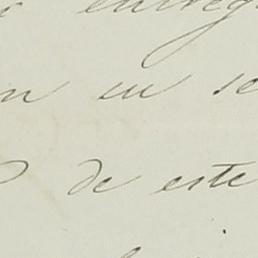 entreg
n en se
de este